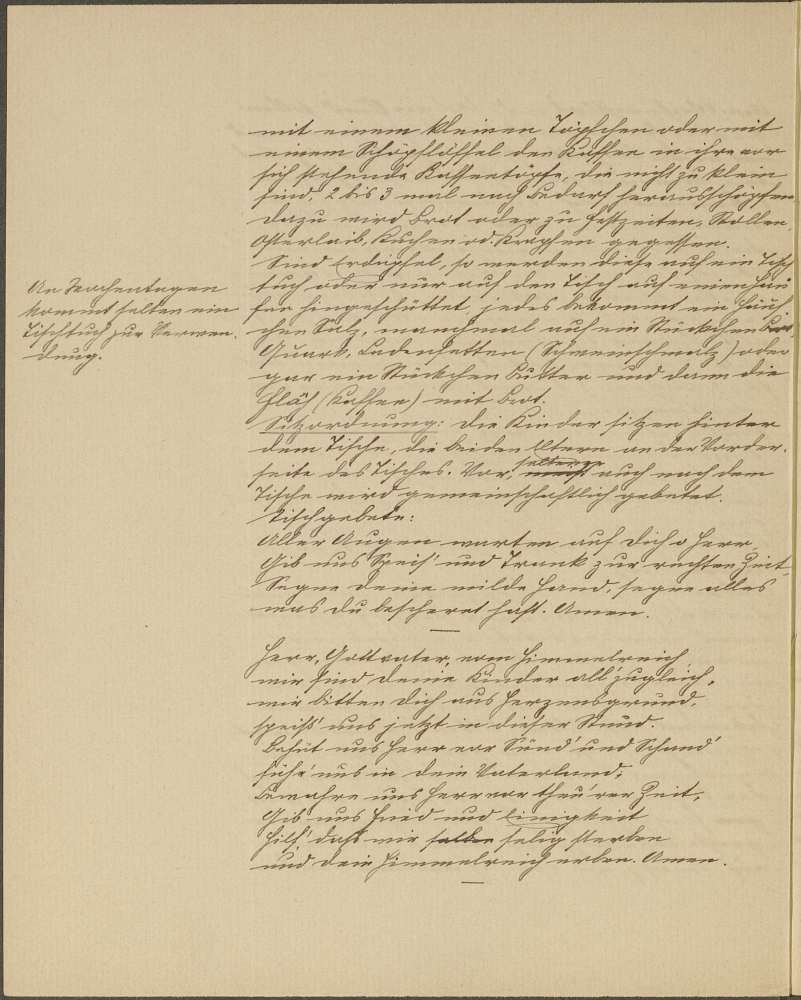 mit einem kleinen Töpfchen oder mit
einem Schöpflöffel den Kaffee in ihre vor
sich stehende Kaffeetöpfe, die nicht zu klein
sind, 2 bis 3 mal nach Bedarf herausschöpfen,
dazu wird Brot oder zu Festzeiten, Stollen,
Osterlaib, Kuchen od. Krapfen gegessen.
Sind Erdäpfel, so werden diese auf ein Tisch
tuch oder nur auf den Tisch auf einen Hau
fen hingeschüttet, jedes bekommt ein Häuf
chen Salz, manchmal auch ein Stückchen Brot,
Quark, Ladenfetten (Schweineschmalz) oder
gar ein Stückchen Butter und dann die
Fläh (Kaffee) mit Brot.
An Wochentagen
kommt selten ein
Tischtuch zur Verwen
dung.
Sitzordnung: die Kinder sitzen hinter
dem Tische, die beiden Eltern an der Vorder
seite des Tisches. Vor, seltener auch nach dem
Tische wird gemeinschaftlich gebetet.
Tischgebete:
Aller Augen warten auf Dich o Herr,
Gib uns Speis' und Trank zur rechten Zeit,
Segne deine milde Hand, segne alles
was du bescheret hast. Amen.
Herr, Gottvater, vom Himmelreich
wir sind deine Kinder all' zugleich,
wir bitten Dich aus Herzensgrund,
speiß' uns jetzt in dieser Stund.
Behüt uns Herr vor Sünd' und Schand'
führ' uns in dein Vaterland,
Bewahre uns Herr vor theu'rer Zeit,
Gib uns Fried und Einigkeit
Hilf' daß wir selig sterben
und dein Himmelreich erben. Amen.